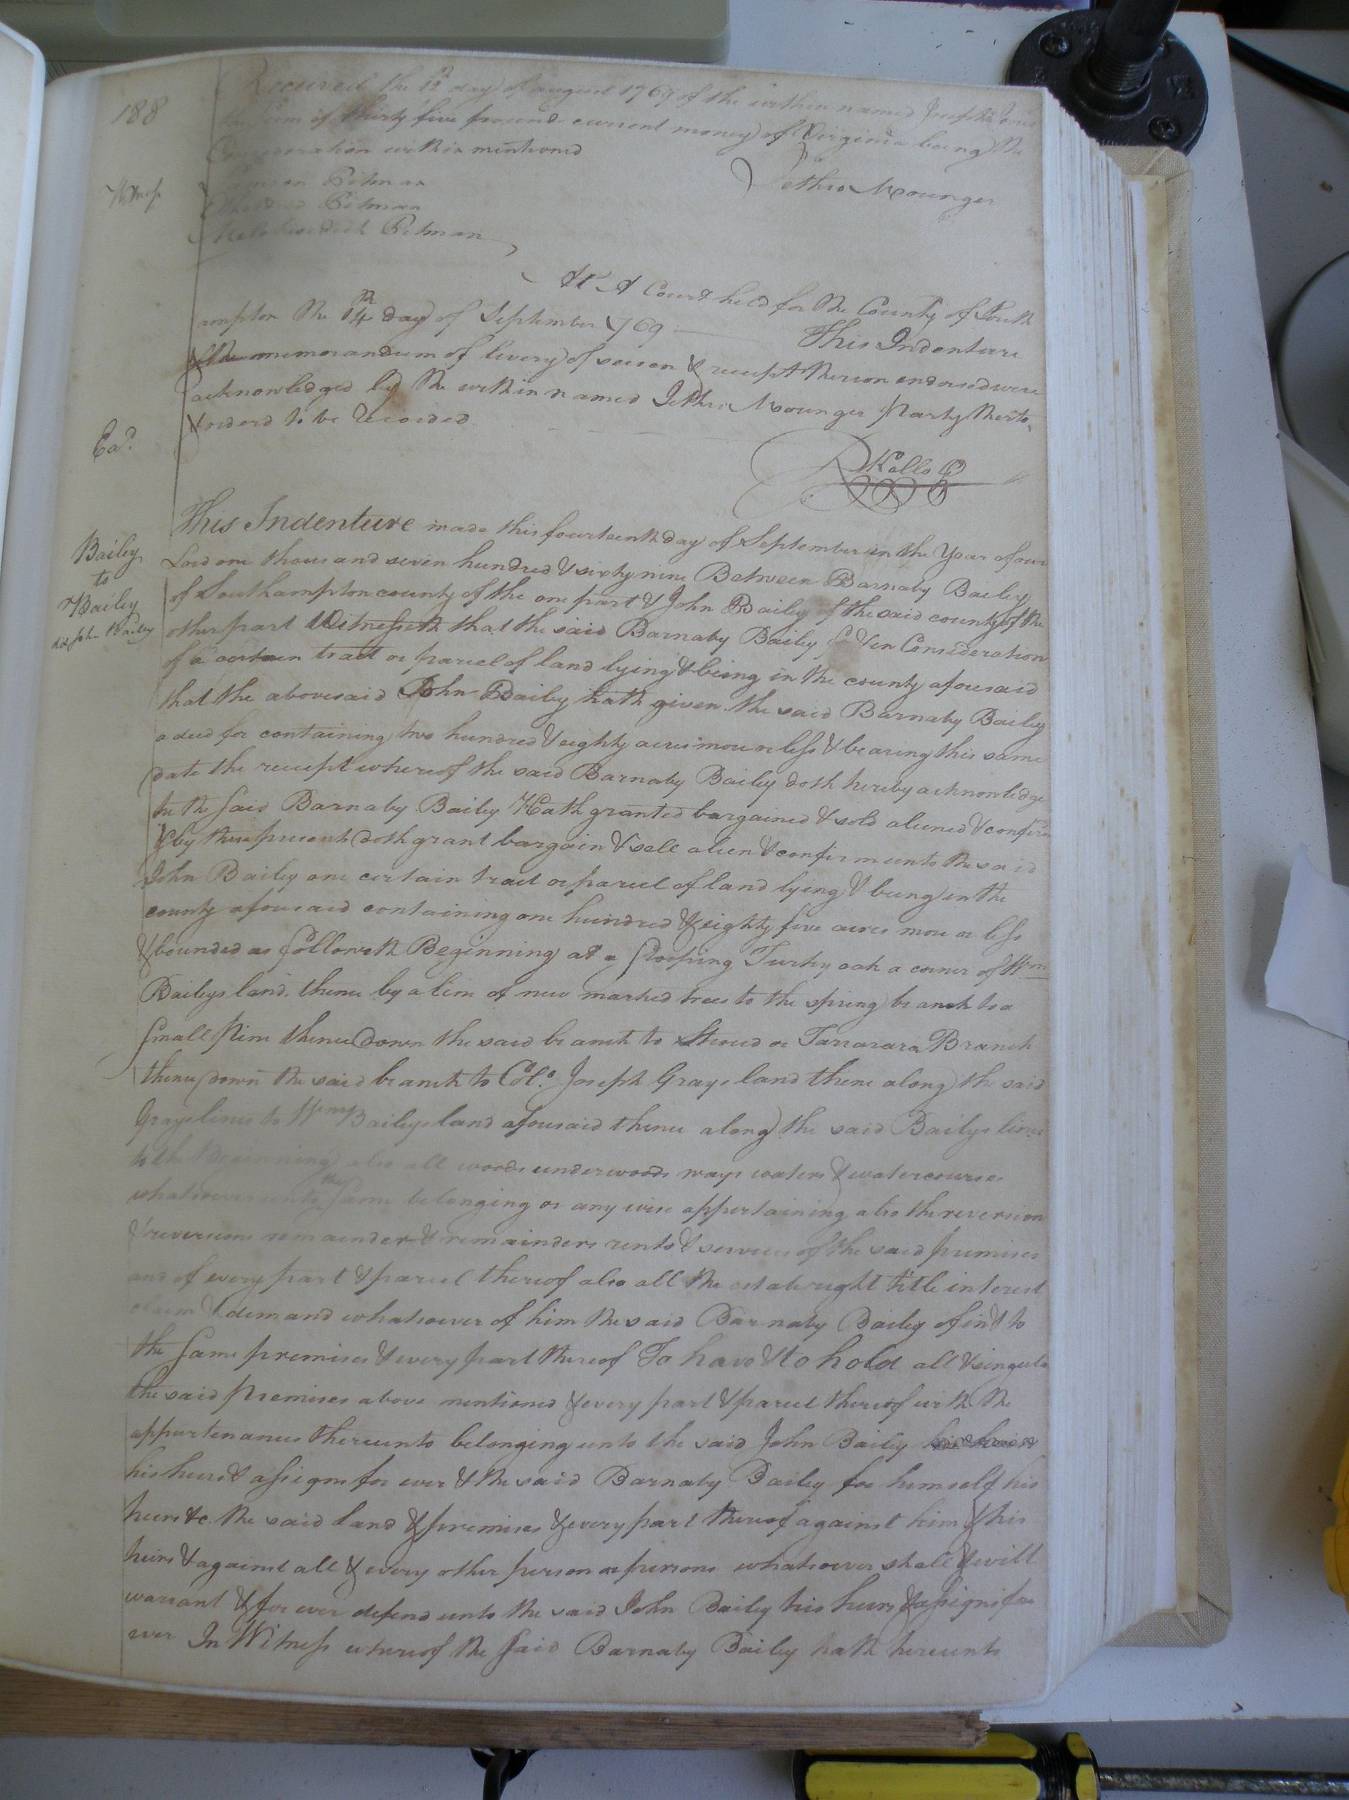 188
Received the 12 day of august 1769 of the within named Joseph
the Sum of thirty five pound current money of Virginia being the
Consideration within mentioned
Jethro Mounger
Witness
Pitman
Pitman
Pitman
At A Court held for the County of South
ampton the 14th day of September 1769 This Indenture
memorandum of livery of seison & receipt thereon endorsed were
acknowledged by the within named Jethro Mounger Party thereto
& orderd to be recorded
Exd.
R Kello C
This Indenture made this fourteenth day of September in the Year of our
Bailey
to
Bailey
John Bailey
Lord one thousand seven hundred & sixty nine Between Barnaby Bailey
of Southampton county of the one part & John Bailey of the said county of the
other part Witnesseth that the said Barnaby Bailey in Consideration
of a certain tract or parcel of land lying & being in the county aforesaid
that the abovesaid John Baily hath given the said Barnaby Bailey
a deed for containing two hundred & eighty acres more or less & bearing this same
date the receipt whereof the said Barnaby Bailey doth hereby acknowledge
he the said Barnaby Bailey Hath granted bargained & sold aliened & confirm
& by these presents doth grant bargain & sell alien & confirm unto the said
John Bailey one certain tract or parcel of land lying & being in the
county aforesaid containing one hundred & eighty five acres more or less
& bounded as followeth Beginning at a Stooping Turky oak a corner of Wm
Baileys land thence by a line of new marked trees to the spring branch to a
Small Pine thence down the said branch to or Tarrarara Branch
thence down the said branch to Colo. Joseph Grays land thence along the said
Grays lines to Wm Baileys land aforesaid thence along the said Bailys lines
to the Beginning also all woods underwoods ways waters & watercourses
whatsoever unto the same belonging or any wise appertaining also the reversion
& reversions remainder & remainders rents & services of the said premises
and of every part & parcel thereof also all the estate right title interest
claim & demand whatsoever of him the said Barnaby Bailey of in & to
the same premises & every part thereof To have & to hold all & singula
the said premises above mentioned & every part & parcel thereof with the
appurtenances thereunto belonging unto the said John Bailey
his heirs & assigns for ever & the said Barnaby Bailey for himself his
heirs &c the said land & premises & every part thereof against him & his
heirs & against all & every other person or persons whatsoever shall & will
warrant & for ever defend unto the said John Bailey his heirs & assigns for
ever In Witness whereof the said Barnaby Bailey hath hereunto